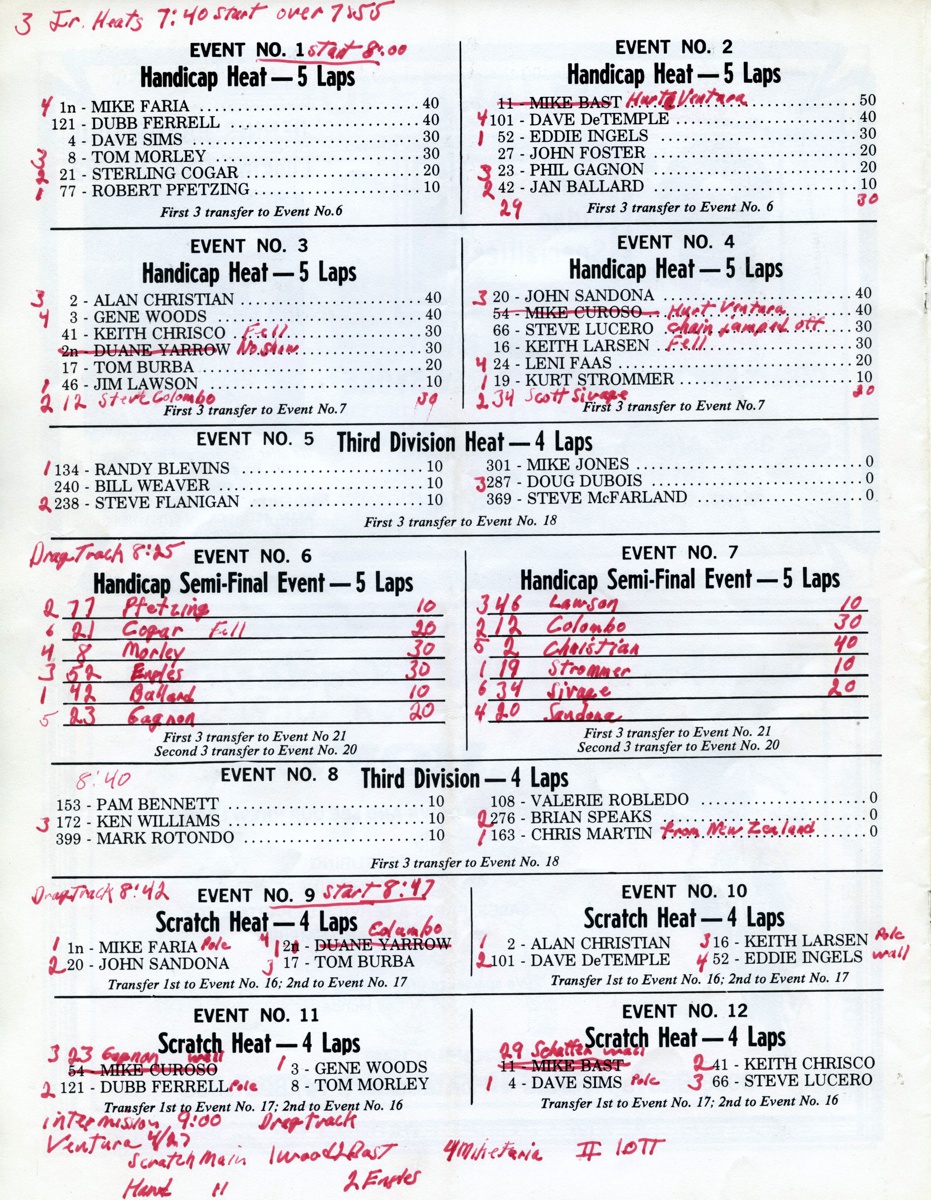 3 Jr. Heats 7:40 start over 7:55
EVENT NO. 1 start 8:00
Handicap Heat — 5 Laps
4 1n - MIKE FARIA 40
121 - DUBB FERRELL 40
4 - DAVE SIMS 30
3 8 - TOM MORLEY 30
2 21 - STERLING COGAR 20
1 77 - ROBERT PFETZING 10
First 3 transfer to Event No.6
EVENT NO. 2
Handicap Heat — 5 Laps
11 - MIKE BAST Hurt Ventura 50
4 101 - DAVE DeTEMPLE 40
1 52 - EDDIE INGELS 30
27 - JOHN FOSTER 20
3 23 - PHIL GAGNON 20
2 42 - JAN BALLARD 10
29 30
First 3 transfer to Event No. 6
EVENT NO. 3
Handicap Heat — 5 Laps
3 2 - ALAN CHRISTIAN 40
4 3 - GENE WOODS 40
41 - KEITH CHRISCO Fell 30
2n - DUANE YARROW No show 30
17 - TOM BURBA 20
1 46 - JIM LAWSON 10
2 12 Steve Colombo
First 3 transfer to Event No.7
EVENT NO. 4
Handicap Heat — 5 Laps
3 20 - JOHN SANDONA 40
54 - MIKE CUROSO Hurt Ventura 40
66 - STEVE LUCERO chain jumped off 30
16 - KEITH LARSEN Fell 30
4 24 - LENI FAAS 20
1 19 - KURT STROMMER 10
2 34 Scott Sivage 20
First 3 transfer to Event No.7
EVENT NO. 5 Third Division Heat — 4 Laps
1 134 - RANDY BLEVINS 10
240 - BILL WEAVER 10
2 238 - STEVE FLANIGAN 10
301 - MIKE JONES 0
3 287 - DOUG DUBOIS 0
369 - STEVE McFARLAND 0
First 3 transfer to Event No. 18
Drag Track 8:25
EVENT NO. 6
Handicap Semi-Final Event — 5 Laps
2 77 Pfetzing 10
6 21 Cogar Fell 20
4 8 Morley 30
3 52 Engles 30
1 42 Ballard 10
5 23 Gagnon 20
First 3 transfer to Event No 21
Second 3 transfer to Event No. 20
EVENT NO. 7
Handicap Semi-Final Event — 5 Laps
3 46 Lawson 10
2 12 Colombo 30
5 2 Christian 40
1 19 Strommer 10
6 34 Sivage 20
4 20 Sandona
First 3 transfer to Event No. 21
Second 3 transfer to Event No. 20
8:40
EVENT NO. 8 Third Division — 4 Laps
153 - PAM BENNETT 10
3 172 - KEN WILLIAMS 10
399 - MARK ROTONDO 10
108 - VALERIE ROBLEDO 0
2 276 - BRIAN SPEAKS 0
1 163 - CHRIS MARTIN from New Zealand 0
First 3 transfer to Event No. 18
Drag Track 8:42
EVENT NO. 9 start 8:47
Scratch Heat — 4 Laps
Columbo
1 1n - MIKE FARIA Pole
4 12n - DUANE YARROW
2 20 - JOHN SANDONA
3 17 - TOM BURBA
Transfer 1st to Event No. 16; 2nd to Event No. 17
EVENT NO. 10
Scratch Heat — 4 Laps
1 2 - ALAN CHRISTIAN
3 16 - KEITH LARSEN Pole
2 101 - DAVE DeTEMPLE
4 52 - EDDIE INGELS wall
Transfer 1st to Event No. 16; 2nd to Event No. 17
EVENT NO. 11
Scratch Heat — 4 Laps
3 23 Gagnon wall
54 - MIKE CUROSO
1 3 - GENE WOODS
2 121 - DUBB FERRELL Pole
8 - TOM MORLEY
Transfer 1st to Event No. 17; 2nd to Event No. 16
EVENT NO. 12
Scratch Heat — 4 Laps
29 wall
11 - MIKE BAST
2 41 - KEITH CHRISCO
1 4 - DAVE SIMS Pole
3 66 - STEVE LUCERO
Transfer 1st to Event No. 17; 2nd to Event No. 16
intermission 9:00 Drag Track
Ventura 4/27
Scratch Main 1 Wood 2 Bast 4 Mike Faria II
Hand 11 2 Engles